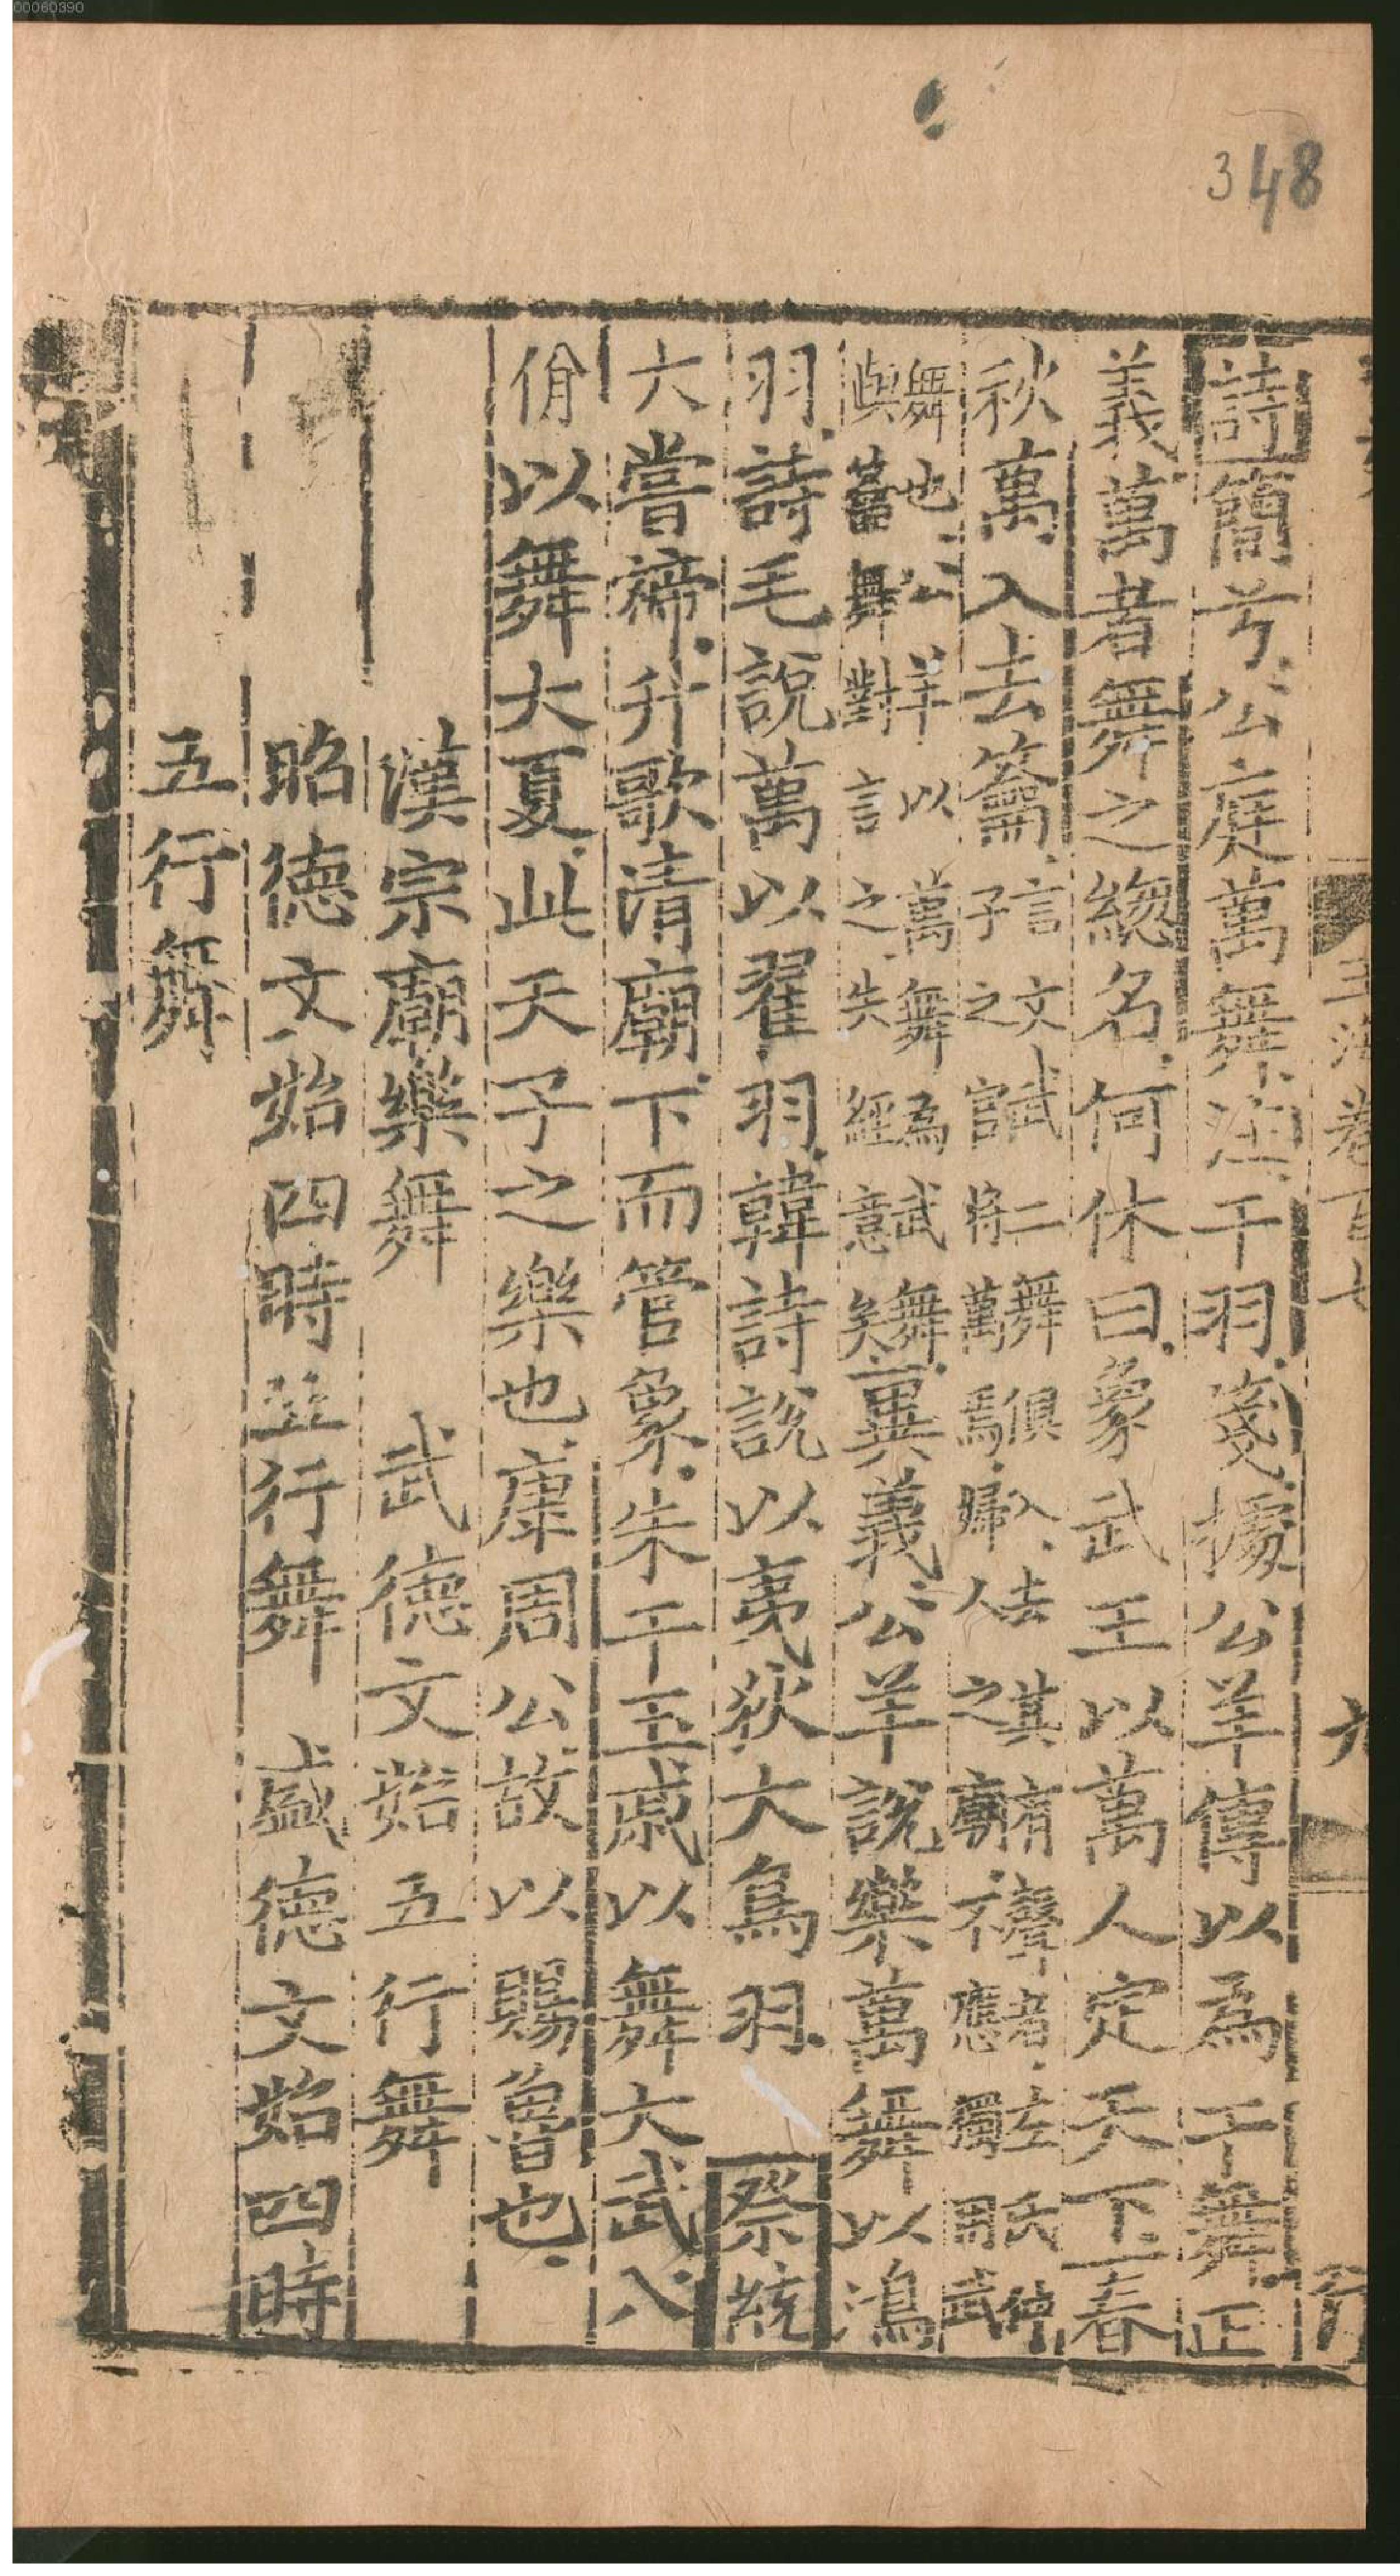 00060390
348
玉海卷百七
六
詩簡兮公庭萬舞注干羽箋據公羊傳以爲干舞正
義萬者舞之緫名何休曰象武王以萬人定天下春
秋萬入去籥言文武二舞俱入去其有聲者左氏傳子之宫將萬焉婦人之廟不應獨用武
舞也公羊以萬舞爲武舞與籥舞對言之失經意矣異義公羊說樂萬舞以鴻
羽詩毛說萬以翟羽韓詩說以夷狄大鳥羽 祭統
大嘗禘升歌清廟下而管象朱干玉戚以舞大武八
佾以舞大夏此天子之樂也康周公故以賜魯也
漢宗廟樂舞 武德文始五行舞
昭德文始四時五行舞 盛德文始四時
五行舞